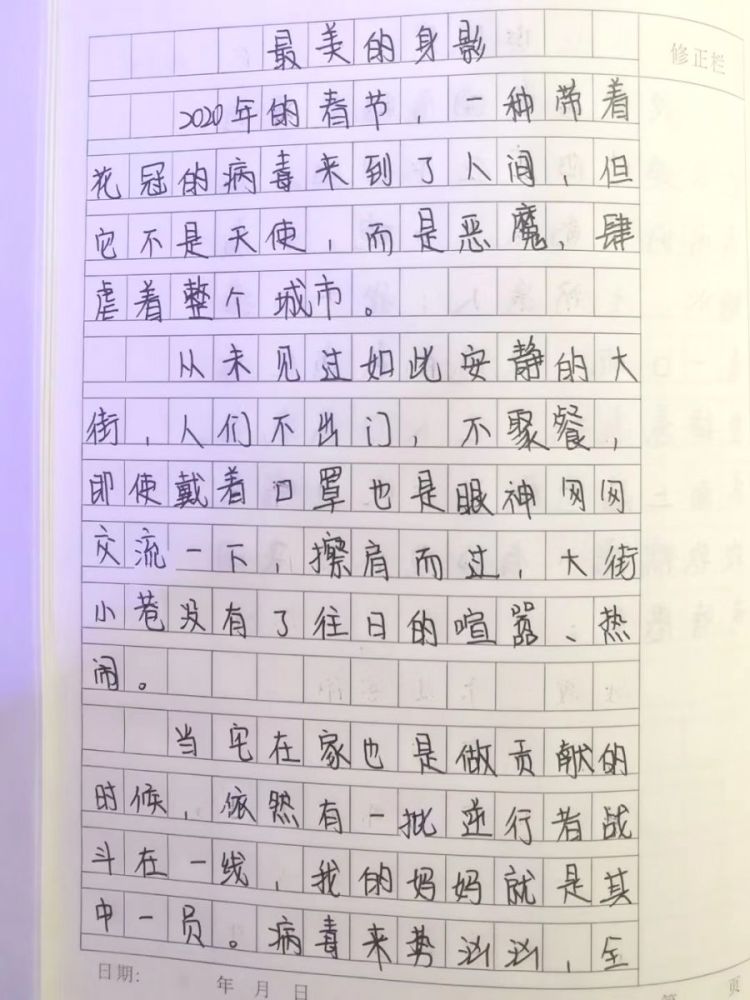 最美的身影
修正栏
2020年的春节，一种带着
花冠的病毒来到了人间，但
它不是天使，而是恶魔，肆
虐着整个城市。
从未见过如此安静的大
街，人们不出门，不聚餐，
即使戴着口罩也是眼神网网
交流一下，擦肩而过，大街
小巷没有了往日的喧嚣、热
闹。
当宅在家也是做贡献的
时候，依然有一批逆行者战
斗在一线，我的妈妈就是其
中一员。病毒来势汹汹，全
日期: 年 月 日
第 页